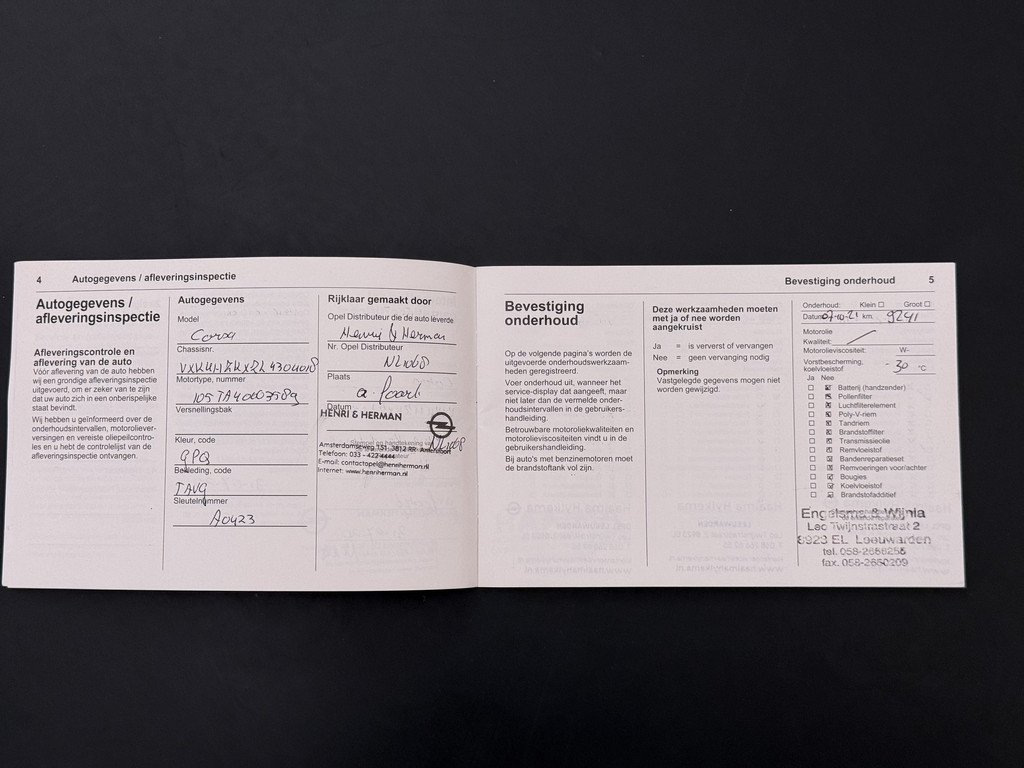 4 Autogegevens / afleveringsinspectie
Autogegevens /
afleveringsinspectie
Afleveringscontrole en
aflevering van de auto
Vóór aflevering van de auto hebben
wij een grondige afleveringsinspectie
uitgevoerd, om er zeker van te zijn
dat uw auto zich in een onberispelijke
staat bevindt.
Wij hebben u geïnformeerd over de
onderhoudsintervallen, motoroliever-
versingen en vereiste oliepeilcontro-
les en u hebt de controlelijst van de
afleveringsinspectie ontvangen.
Autogegevens
Model
Corsa
Chassisnr.
Motortype, nummer
Versnellingsbak
Kleur, code
GPQ
Bekleding, code
TAVG
Sleutelnummer
A0423
Rijklaar gemaakt door
Opel Distributeur die de auto leverde
Henri & Herman
Nr. Opel Distributeur
NL1068
Plaats
Datum
HENRI & HERMAN
NL1068
Stempel en handtekening van
Amsterdamseweg 151, 3812 RR Amersfoort
Telefoon: 033 - 422 4444
E-mail: contactopel@henriherman.nl
Internet: www.henriherman.nl
Bevestiging onderhoud 5
Bevestiging
onderhoud
Op de volgende pagina's worden de
uitgevoerde onderhoudswerkzaam-
heden geregistreerd.
Voer onderhoud uit, wanneer het
service-display dat aangeeft, maar
niet later dan de vermelde onder-
houdsintervallen in de gebruikers-
handleiding.
Betrouwbare motoroliekwaliteiten en
motorolieviscositeiten vindt u in de
gebruikershandleiding.
Bij auto's met benzinemotoren moet
de brandstoftank vol zijn.
Deze werkzaamheden moeten
met ja of nee worden
aangekruist
Ja = is ververst of vervangen
Nee = geen vervanging nodig
Opmerking
Vastgelegde gegevens mogen niet
worden gewijzigd.
Onderhoud: Klein Groot
Datum 07-10-21 km. 9241
Motorolie
Kwaliteit:
Motorolieviscositeit: W-
Vorstbescherming,
koelvloeistof -30 °C
Ja Nee
Batterij (handzender)
Pollenfilter
Luchtfilterelement
Poly-V-riem
Tandriem
Brandstoffilter
Transmissieolie
Remvloeistof
Bandenreparatieset
Remvoeringen voor/achter
Bougies
Koelvloeistof
Brandstofadditief
Engelsma & Wijnia
Leo Twijnstrastraat 2
8923 EL Leeuwarden
tel. 058-2666255
fax. 058-2660209